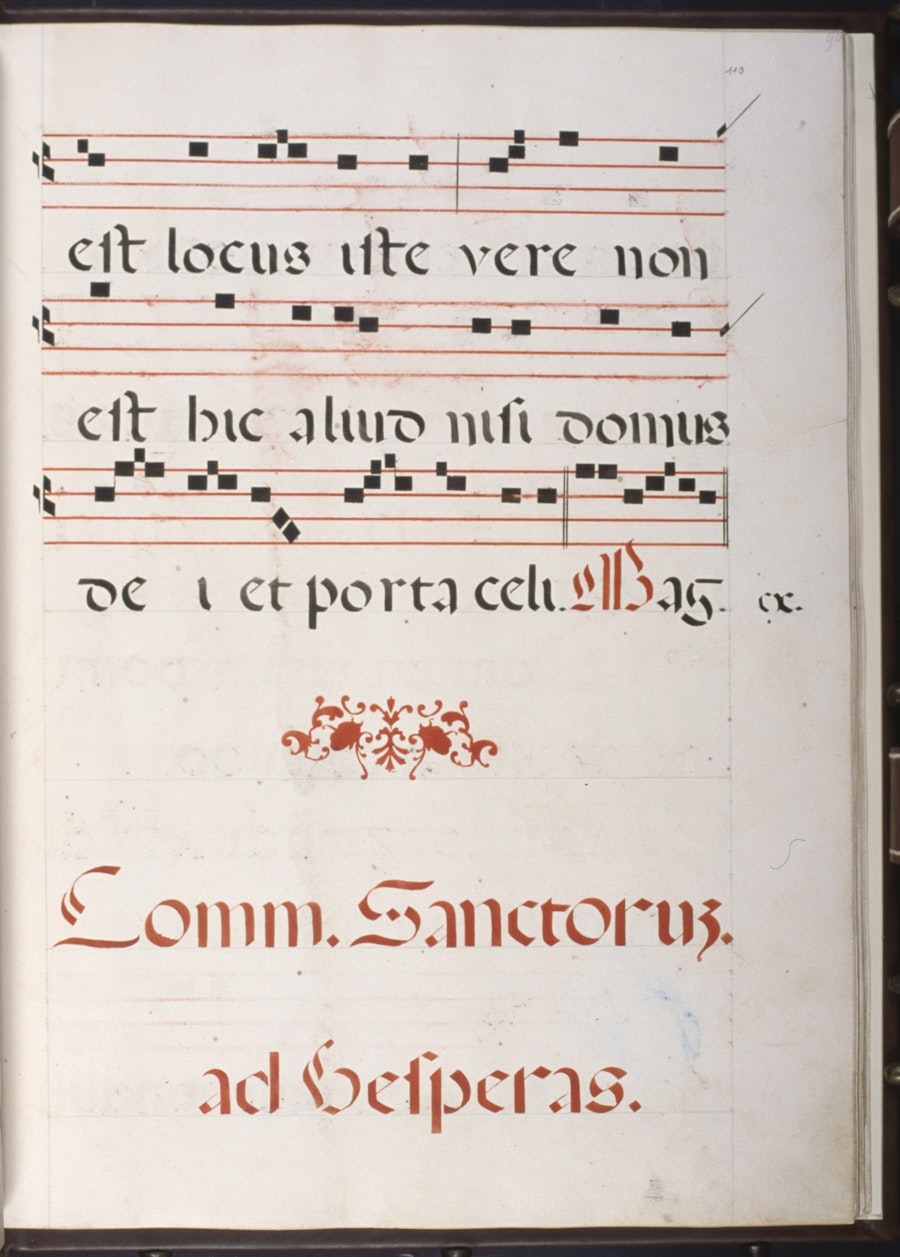 110
est locus iste vere non
est hic aliud nisi domus
de i et porta celi. Mag. ex.
Comm. Sanctoruꝫ.
ad Vesperas.